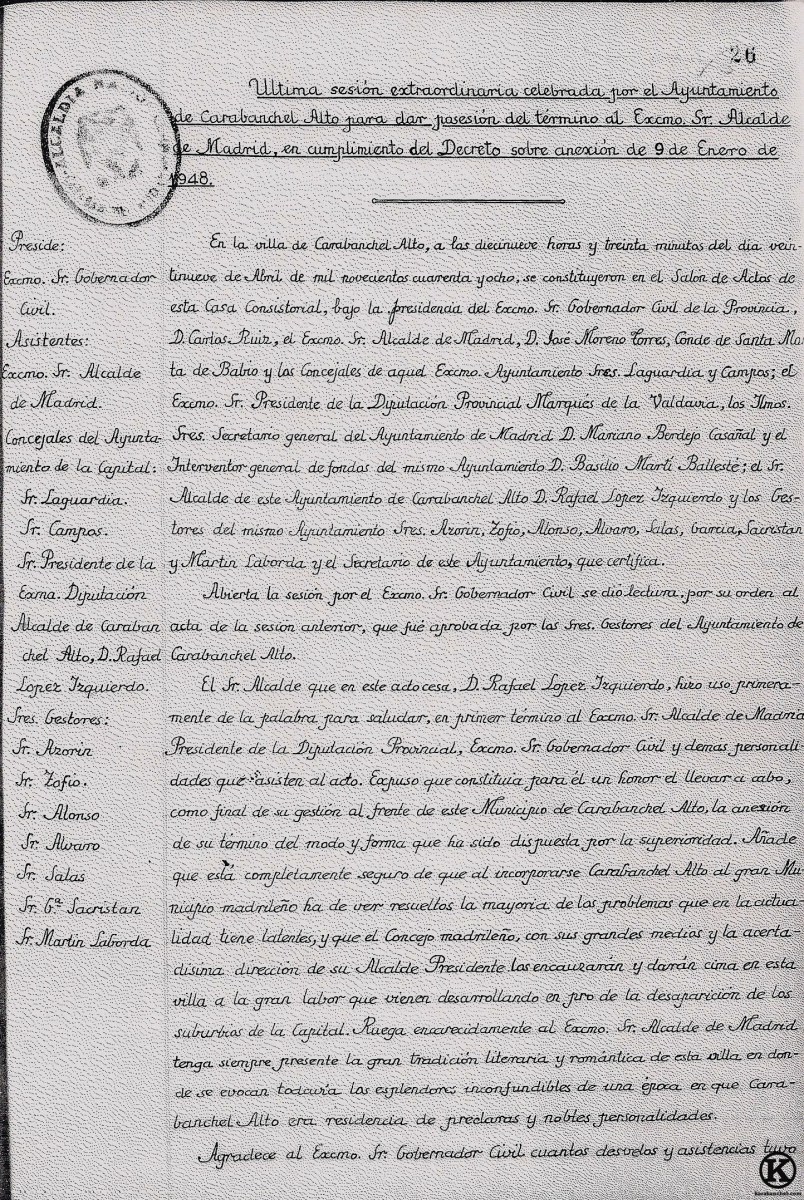 26
Ultima sesión extraordinaria celebrada por el Ayuntamiento
de Carabanchel Alto para dar posesión del término al Excmo. Sr. Alcalde
de Madrid, en cumplimiento del Decreto sobre anexión de 9 de Enero de
1948.
Preside:
Excmo. Sr. Gobernador
Civil.
Asistentes:
Excmo. Sr. Alcalde
de Madrid.
Concejales del Ayunta-
miento de la Capital:
Sr. Laguardia.
Sr. Campos.
Sr. Presidente de la
Exma. Diputación
Alcalde de Caraban
chel Alto, D. Rafael
Lopez Izquierdo.
Sres. Gestores:
Sr. Azorin
Sr. Zofío.
Sr. Alonso
Sr. Alvaro
Sr. Salas
Sr. Gª Sacristan
Sr. Martin Laborda
En la villa de Carabanchel Alto, a las diecinueve horas y treinta minutos del dia vein-
tinueve de Abril de mil novecientos cuarenta y ocho, se constituyeron en el Salon de Actos de
esta Casa Consistorial, bajo la presidencia del Excmo. Sr. Gobernador Civil de la Provincia,
D. Carlos Ruiz, el Excmo. Sr. Alcalde de Madrid, D. José Moreno Torres, Conde de Santa Mar
ta de Babio y los Concejales de aquel Excmo. Ayuntamiento Sres. Laguardia y Campos; el
Excmo. Sr. Presidente de la Diputación Provincial Marques de la Valdavia, los Ilmos.
Sres. Secretario general del Ayuntamiento de Madrid D. Mariano Berdejo Casañal y el
Interventor general de fondos del mismo Ayuntamiento D. Basilio Martí Ballesté; el Sr.
Alcalde de este Ayuntamiento de Carabanchel Alto D. Rafael Lopez Izquierdo y los Ges-
tores del mismo Ayuntamiento Sres. Azorin, Zofío, Alonso, Alvaro, Salas, Garcia, Sacristan
y Martin Laborda y el Secretario de este Ayuntamiento, que certifica.
Abierta la sesión por el Excmo. Sr. Gobernador Civil se dio lectura, por su orden al
acta de la sesión anterior, que fué aprobada por los Sres. Gestores del Ayuntamiento de
Carabanchel Alto.
El Sr. Alcalde que en este acto cesa, D. Rafael Lopez Izquierdo, hizo uso primera-
mente de la palabra para saludar, en primer término al Excmo. Sr. Alcalde de Madrid
Presidente de la Diputación Provincial, Excmo. Sr. Gobernador Civil y demás personali-
dades que asisten al acto. Expuso que constituia para él un honor el llevar a cabo,
como final de su gestión al frente de este Municipio de Carabanchel Alto, la anexión
de su término del modo y forma que ha sido dispuesta por la superioridad. Añade
que está completamente seguro de que al incorporarse Carabanchel Alto al gran Mu-
nicipio madrileño ha de ver resueltos la mayoria de los problemas que en la actua-
lidad tiene latentes, y que el Concejo madrileño, con sus grandes medios y la acerta-
disima dirección de su Alcalde Presidente los encauzarán y darán cima en esta
villa a la gran labor que vienen desarrollando en pro de la desaparición de los
suburbios de la Capital. Ruega encarecidamente al Excmo. Sr. Alcalde de Madrid
tenga siempre presente la gran tradición literaria y romántica de esta villa en don-
de se evocan todavía los esplendores inconfundibles de una época en que Cara-
banchel Alto era residencia de preclaras y nobles personalidades.
Agradece al Excmo. Sr. Gobernador Civil cuantos desvelos y asistencias tuvo
K